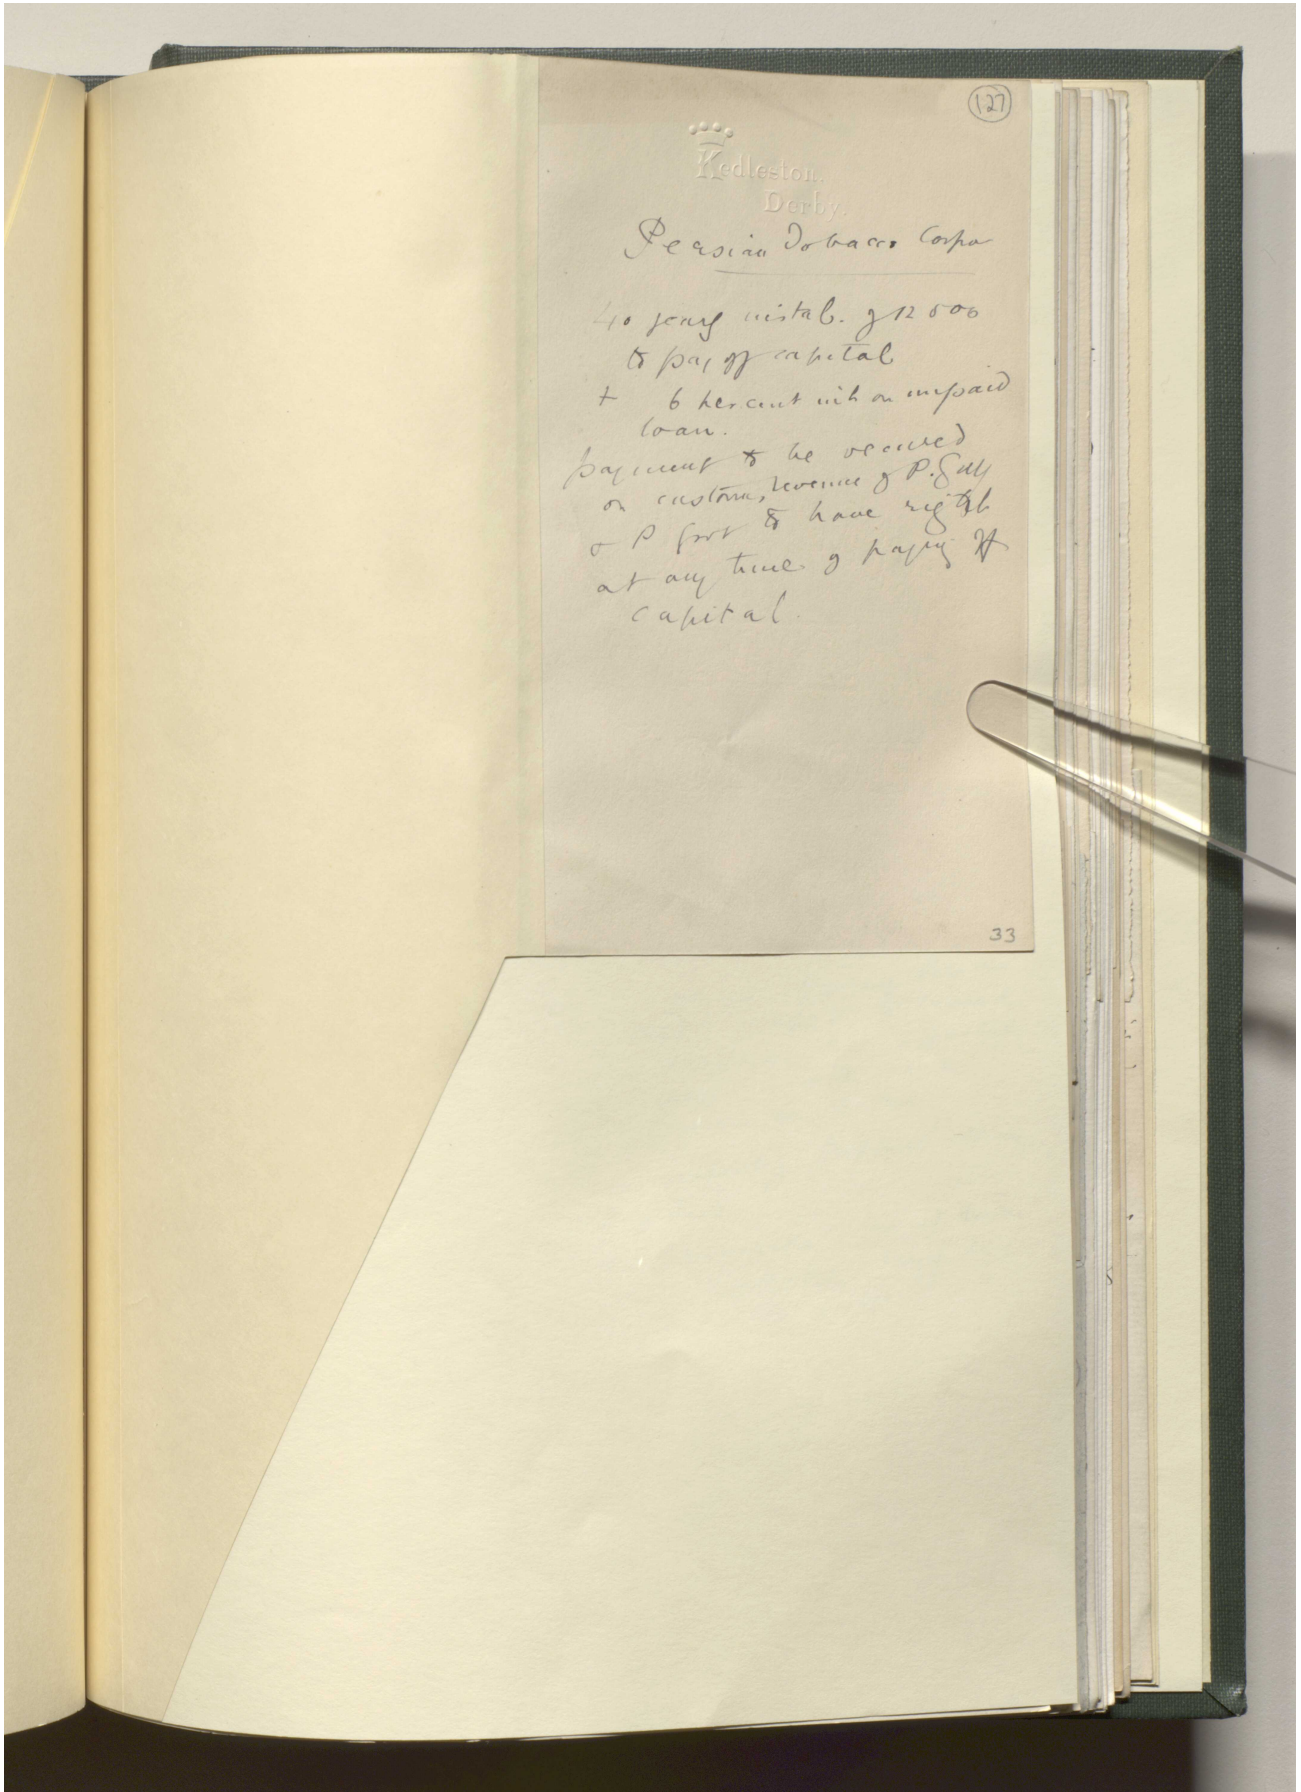 127
Kedleston.
Derby.
Persian Tobacco Corpn
40 years instal. of 12 500
to pay off capital
+ 6 per cent int on unpaid
loan.
payment to be secured
on customs revenue of P. Gulf
& P Govt to have right
at any time of paying off
capital.
33